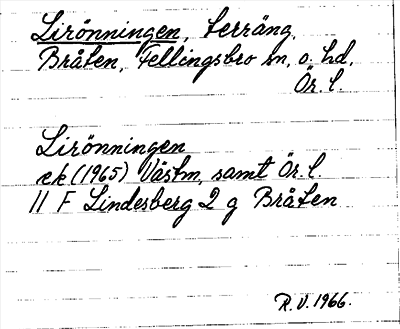 Lirönningen, terräng,
Bråten, Fellingsbro sn, o. hd,
Ör. l.
Lirönningen
ek (1965) Västm, samt Ör. l.
11 F Lindesberg 2 g Bråten
R.V. 1966.